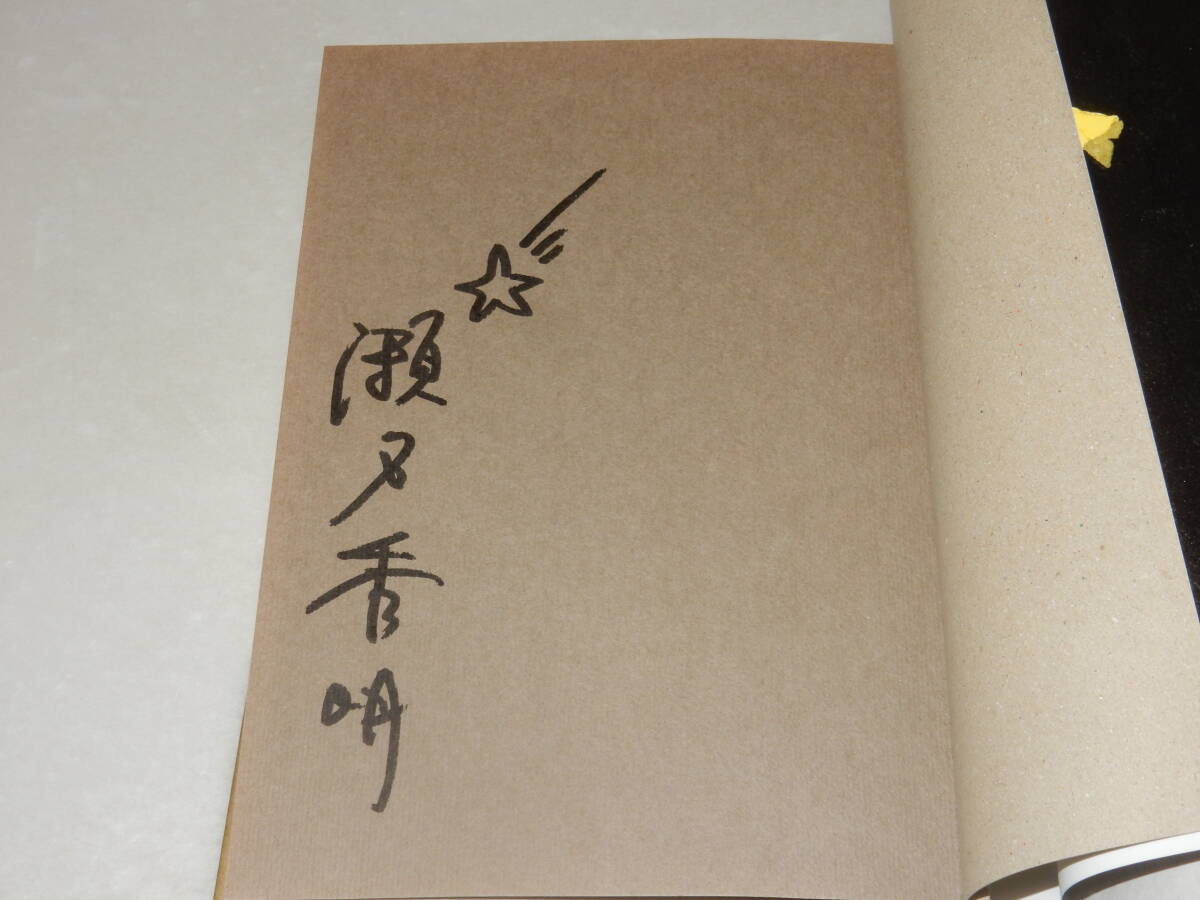 瀬名秀明